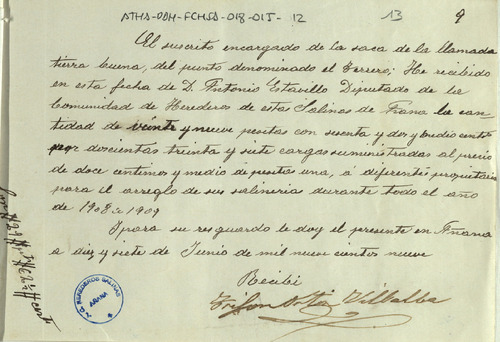 ATHA-DAH-FCHSA-018-015-12
13
9
El suscrito encargado de la saca de la llamada
tierra buena, del punto denominado el Terrero; He recibido
en esta fecha de D. Antonio Estavillo Diputado de la
Comunidad de Herederos de estas Salinas de Añana la can-
tidad de veinte y nueve pesetas con sesenta y dos y medio centmos
por doscientas treinta y siete cargas suministradas al precio
de doce centimos y medio de pesetas una, á diferentes propietarios
para el arreglo de sus salineria durante todo el año
de 1908 a 1909
Y para su resguardo le doy el presente en Añana
a diez y siete de Junio de mil nueve cientos nueve
Recibí
Villalba
HEREDEROS SALINAS
AÑANA